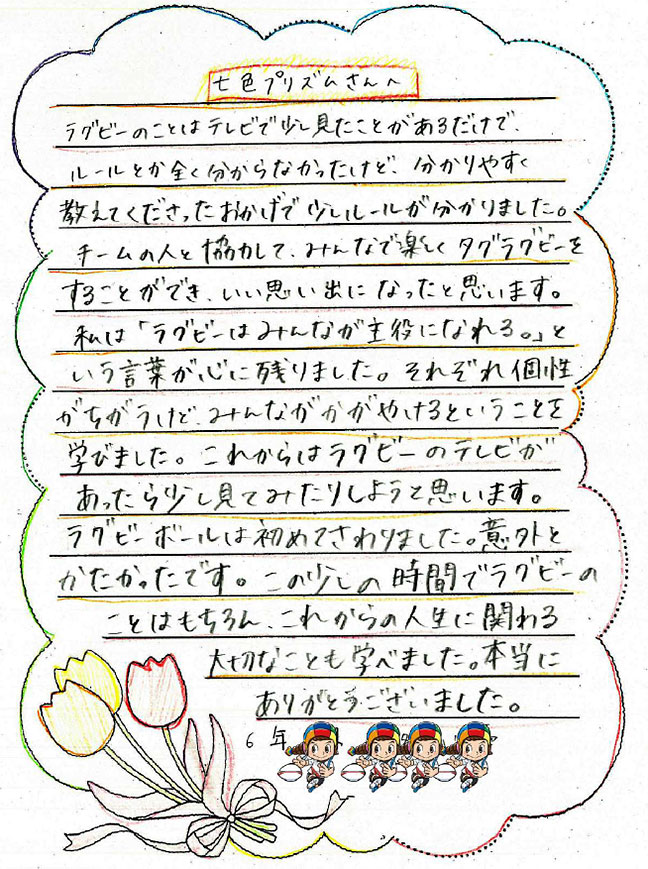 七色プリズムさんへ
ラグビーのことはテレビで少し見たことがあるだけで、
ルールとか全く分からなかったけど、分かりやすく
教えてくださったおかげで少しルールが分かりました。
チームの人と協力して、みんなで楽しくタグラグビーを
することができ、いい思い出になったと思います。
私は「ラグビーはみんなが主役になれる。」と
いう言葉が心に残りました。それぞれ個性
がちがうけど、みんながかがやけるということを
学びました。これからはラグビーのテレビが
あったら少し見てみたりしようと思います。
ラグビーボールは初めてさわりました。意外と
かたかったです。この少しの時間でラグビーの
ことはもちろん、これからの人生に関わる
大切なことも学べました。本当に
ありがとうございました。
6年